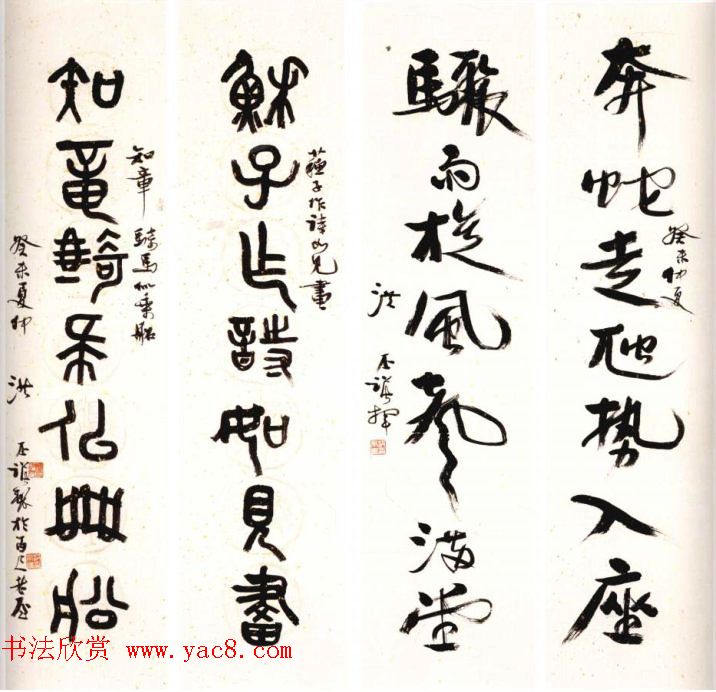 奔蛇走虺势入座
癸未仲夏
驟雨旋風聲满堂
洪丕謨揮
穌子乍詩如見畫
蘇子作詩如見畫
知章騎馬佀乘船
知章騎馬似乘船
癸未夏仲 洪丕謨製於百尺
书法欣赏 www.yac8.com